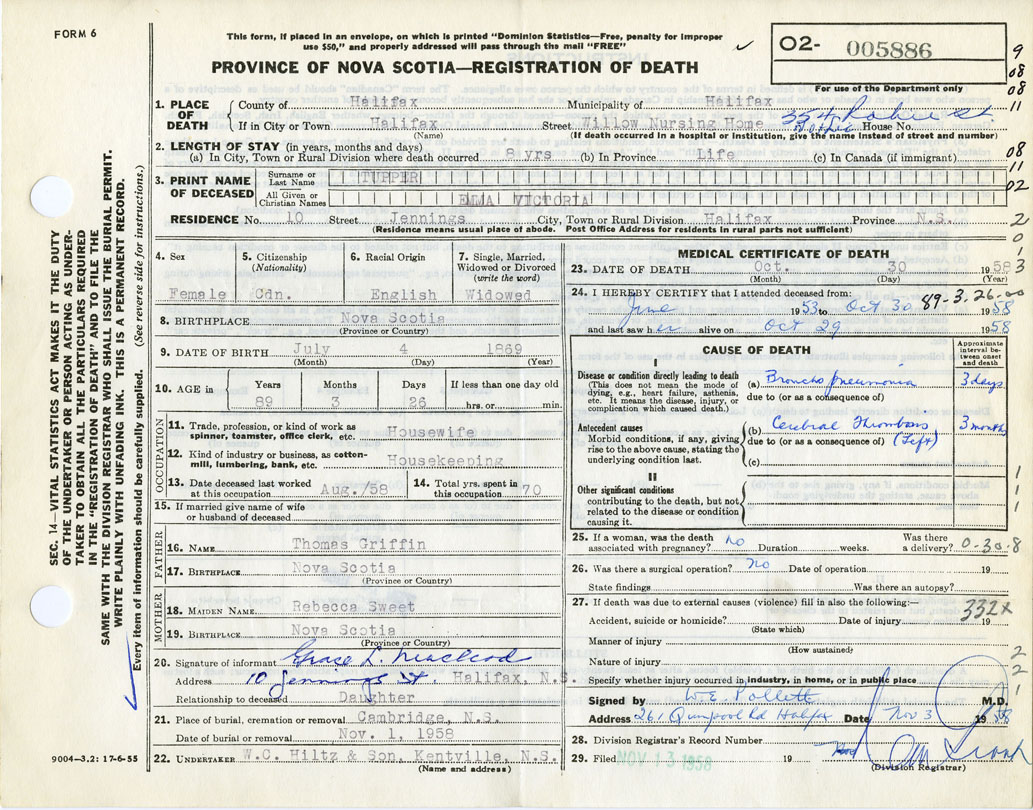 FORM 6
This form, if placed in an envelope, on which is printed "Dominion Statistics—Free, penalty for improper
use $50," and properly addressed will pass through the mail "FREE"
PROVINCE OF NOVA SCOTIA—REGISTRATION OF DEATH
02- 005886
For use of the Department only
9
08
08
11
08
11
02
2
0
1
0
3
1. PLACE OF DEATH
County of Halifax Municipality of Halifax
If in City or Town Halifax Street Willow Nursing Home House No. 334 Robie St.
(Name) (If death occurred in a hospital or Institution, give the name instead of street and number)
2. LENGTH OF STAY (in years, months and days)
(a) In City, Town or Rural Division where death occurred 8 yrs (b) In Province Life (c) In Canada (if immigrant)
3. PRINT NAME OF DECEASED
Surname or Last Name TUPPER
All Given or Christian Names EMMA VICTORIA
RESIDENCE No. 10 Street Jennings City, Town or Rural Division Halifax Province N.S.
(Residence means usual place of abode. Post Office Address for residents in rural parts not sufficient)
4. Sex
Female
5. Citizenship
(Nationality)
Cdn.
6. Racial Origin
English
7. Single, Married,
Widowed or Divorced
(write the word)
Widowed
8. BIRTHPLACE Nova Scotia
(Province or Country)
9. DATE OF BIRTH July 4 1869
(Month) (Day) (Year)
10. AGE in
Years Months Days If less than one day old
89 3 26 hrs. or min.
OCCUPATION
11. Trade, profession, or kind of work as
spinner, teamster, office clerk, etc. Housewife
12. Kind of industry or business, as cotton-
mill, lumbering, bank, etc. Housekeeping
13. Date deceased last worked
at this occupation Aug./58
14. Total yrs. spent in
this occupation 70
15. If married give name of wife
or husband of deceased
FATHER
16. NAME Thomas Griffin
17. BIRTHPLACE Nova Scotia
(Province or Country)
MOTHER
18. MAIDEN NAME Rebecca Sweet
19. BIRTHPLACE Nova Scotia
(Province or Country)
20. Signature of informant Grace L. MacLeod
Address 10 Jennings St Halifax, N.S.
Relationship to deceased Daughter
21. Place of burial, cremation or removal Cambridge, N.S.
Date of burial or removal Nov. 1, 1958
22. UNDERTAKER W.C. Hiltz & Son, Kentville, N.S.
(Name and address)
9004—3.2: 17-6-55
SEC. 14—VITAL STATISTICS ACT MAKES IT THE DUTY
OF THE UNDERTAKER OR PERSON ACTING AS UNDER-
TAKER TO OBTAIN ALL THE PARTICULARS REQUIRED
IN THE "REGISTRATION OF DEATH" AND TO FILE THE
SAME WITH THE DIVISION REGISTRAR WHO SHALL ISSUE THE BURIAL PERMIT.
WRITE PLAINLY WITH UNFADING INK. THIS IS A PERMANENT RECORD.
Every item of information should be carefully supplied. (See reverse side for instructions.)
MEDICAL CERTIFICATE OF DEATH
23. DATE OF DEATH Oct. 30 1958
(Month) (Day) (Year)
24. I HEREBY CERTIFY that I attended deceased from:
June 1953 to Oct 30 1958
89-3.26-00
and last saw her alive on Oct 29 1958
CAUSE OF DEATH
Approximate
interval be-
tween onset
and death
I
Disease or condition directly leading to death
(This does not mean the mode of
dying, e.g., heart failure, asthenia,
etc. It means the disease, injury, or
complication which caused death.)
(a) Broncho pneumonia 3 days
due to (or as a consequence of)
Antecedent causes
Morbid conditions, if any, giving
rise to the above cause, stating the
underlying condition last.
(b) Cerebral Thrombosis 3 months
due to (or as a consequence of) (Left)
(c)
II
Other significant conditions
contributing to the death, but not
related to the disease or condition
causing it.
1
1
1
25. If a woman, was the death
associated with pregnancy? no Duration weeks. Was there
a delivery? 0-30-8
26. Was there a surgical operation? no Date of operation 19
State findings Was there an autopsy?
27. If death was due to external causes (violence) fill in also the following:—
332X
Accident, suicide or homicide? Date of injury 19
(State which)
Manner of injury
(How sustained)
Nature of injury
Specify whether injury occurred in industry, in home, or in public place
2
2
1
Signed by W.E. Pollett M.D.
Address 261 Quinpool Rd Halifax Date Nov 3 1958
28. Division Registrar's Record Number
29. Filed NOV 13 1958 19
(Division Registrar)